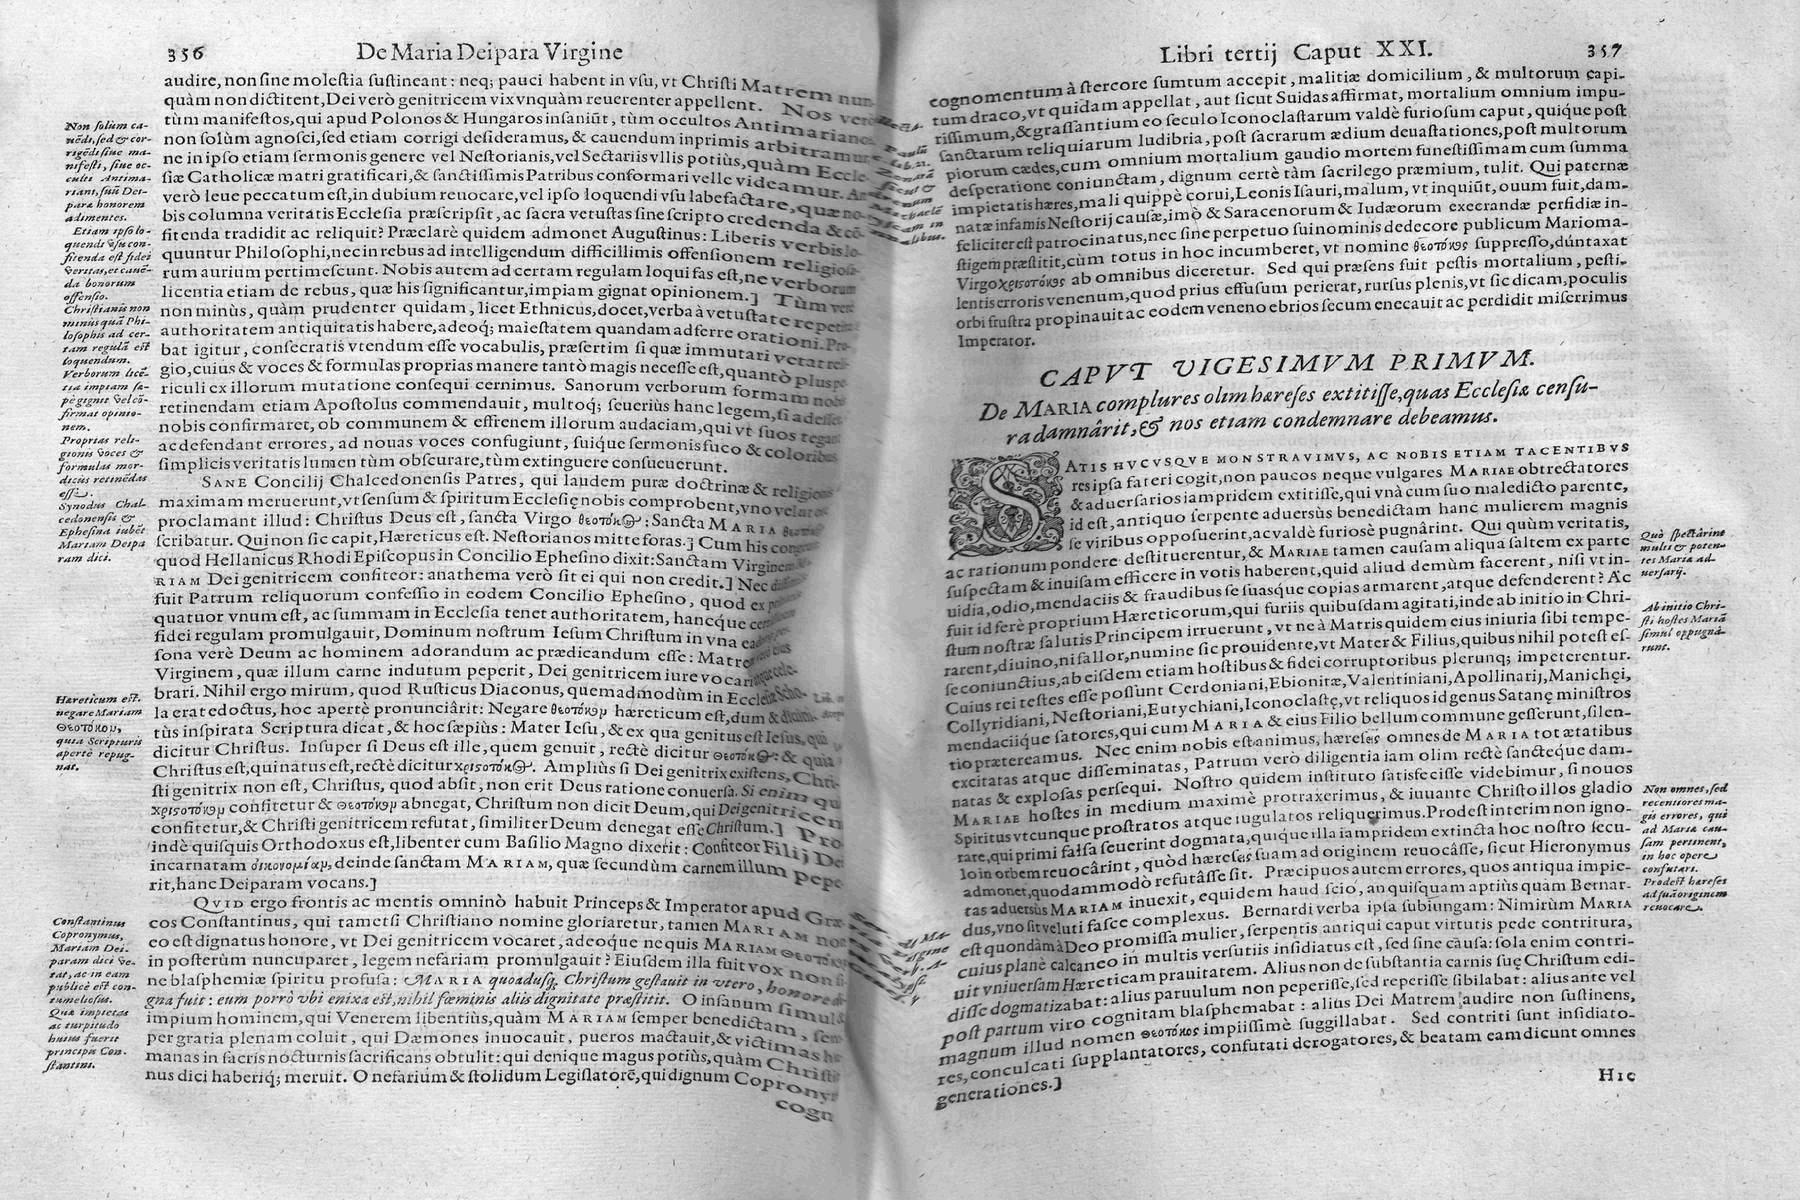 356
De Maria Deipara Virgine
audire, non sine molestia sustineant: neq; pauci habent in vsu, vt Christi Matrem nun-
quàm non dictitent, Dei verò genitricem vix vnquàm reuerenter appellent. Nos verò
tùm manifestos, qui apud Polonos & Hungaros insaniũt, tùm occultos Antimarianos
non solùm agnosci, sed etiam corrigi desideramus, & cauendum inprimis arbitramur
ne in ipso etiam sermonis genere vel Nestorianis, vel Sectariis vllis potiùs, quàm Eccle-
siæ Catholicæ matri gratificari, & sanctissimis Patribus conformari velle videamur. An
verò leue peccatum est, in dubium reuocare, vel ipso loquendi vsu labefactare, quæ no-
bis columna veritatis Ecclesia præscripsit, ac sacra vetustas sine scripto credenda & cõ-
fitenda tradidit ac reliquit? Præclarè quidem admonet Augustinus: Liberis verbis lo-
quuntur Philosophi, nec in rebus ad intelligendum difficillimis offensionem religiosa-
rum aurium pertimescunt. Nobis autem ad certam regulam loqui fas est, ne verborum
licentia etiam de rebus, quæ his significantur, impiam gignat opinionem.] Tùm verò
non minùs, quàm prudenter quidam, licet Ethnicus, docet, verba à vetustate repetita
authoritatem antiquitatis habere, adeoq; maiestatem quandam adferre orationi. Pro-
bat igitur, consecratis vtendum esse vocabulis, præsertim si quæ immutari vetat reli-
gio, cuius & voces & formulas proprias manere tantò magis necesse est, quantò plus pe-
riculi ex illorum mutatione consequi cernimus. Sanorum verborum formam nobis
retinendam etiam Apostolus commendauit, multoq; seueriùs hanc legem, si adesset,
nobis confirmaret, ob communem & effrenem illorum audaciam, qui vt suos tegant
ac defendant errores, ad nouas voces confugiunt, suique sermonis fuco & coloribus
simplicis veritatis lumen tùm obscurare, tùm extinguere consueuerunt.
SANE Concilij Chalcedonensis Patres, qui laudem puræ doctrinæ & religionis
maximam meruerunt, vt sensum & spiritum Ecclesię nobis comprobent, vno velut ore
proclamant illud: Christus Deus est, sancta Virgo θεοτόκος: Sancta MARIA θεοτόκος
scribatur. Qui non sic sapit, Hæreticus est. Nestorianos mitte foras.] Cum his
quod Hellanicus Rhodi Episcopus in Concilio Ephesino dixit: Sanctam Virginem MA-
RIAM Dei genitricem confiteor: anathema verò sit ei qui non credit.] Nec
fuit Patrum reliquorum confessio in eodem Concilio Ephesino, quod ex
quatuor vnum est, ac summam in Ecclesia tenet authoritatem, hancque
fidei regulam promulgauit, Dominum nostrum Iesum Christum in vna
sona verè Deum ac hominem adorandum ac prædicandum esse: Matrem verò eius
Virginem, quæ illum carne indutum peperit, Dei genitricem iure vocari
brari. Nihil ergo mirum, quod Rusticus Diaconus, quemadmodùm in Ecclesiæ Scho-
la erat edoctus, hoc apertè pronunciârit: Negare θεοτόκον hæreticum est, dum &
tùs inspirata Scriptura dicat, & hoc sæpiùs: Mater Iesu, & ex qua genitus est Iesus, qui
dicitur Christus. Insuper si Deus est ille, quem genuit, rectè dicitur θεοτόκος: & quia
Christus est, qui natus est, rectè dicitur χριστοτόκος. Ampliùs si Dei genitrix existens, Chri-
sti genitrix non est, Christus, quod absit, non erit Deus ratione conuersa. Si enim qui
χριστοτόκον confitetur & θεοτόκον abnegat, Christum non dicit Deum, qui Dei genitricem
confitetur, & Christi genitricem refutat, similiter Deum denegat esse Christum.] Pro-
indè quisquis Orthodoxus est, libenter cum Basilio Magno dixerit: Confiteor Filij Dei
incarnatam οἰκονομίαν, deinde sanctam MARIAM, quæ secundùm carnem illum pepe-
rit, hanc Deiparam vocans.]
QVID ergo frontis ac mentis omninò habuit Princeps & Imperator apud Græ-
cos Constantinus, qui tametsi Christiano nomine gloriaretur, tamen MARIAM non
eo est dignatus honore, vt Dei genitricem vocaret, adeoque nequis MARIAM θεοτόκον
in posterùm nuncuparet, legem nefariam promulgauit? Eiusdem illa fuit vox non si-
ne blasphemiæ spiritu profusa: MARIA quoadusq; Christum gestauit in vtero, honore di-
gna fuit: eum porrò vbi enixa est, nihil fœminis aliis dignitate præstitit. O insanum simul &
impium hominem, qui Venerem libentiùs, quàm MARIAM semper benedictam, sem-
per gratia plenam coluit, qui Dæmones inuocauit, pueros mactauit, & victimas hu-
manas in sacris nocturnis sacrificans obtulit: qui denique magus potiùs, quàm Christia-
nus dici haberiq; meruit. O nefarium & stolidum Legislatorẽ, qui dignum Copronymi
cogn
Non solum ca-
uẽdi, sed & cor-
rigẽdi siue ma-
nifesti, siue oc-
culti Antima-
riani, suũ Dei-
paræ honorem
adimentes.
Etiam ipso lo-
quendi vsu con-
fitenda est fidei
veritas, et cauẽ-
da bonorum
offensio.
Christianis non
minùs quã Phi-
losophis ad cer-
tam regulã est
loquendum.
Verborum licẽ-
tia impiam sæ-
pè gignit vel cõ-
firmat opinio-
nem.
Proprias reli-
gionis voces &
formulas mor-
dicùs retinẽdas
esse.
Synodus Chal-
cedonensis &
Ephesina iubẽt
Mariam Deipa
ram dici.
Hæreticum est,
negare Mariam
θεοτόκον,
quia Scripturis
apertè repug-
nat.
Constantinus
Copronymus,
Mariam Dei-
param dici ve-
tat, ac in eam
publicè est con-
tumeliosus.
Quæ impietas
ac turpitudo
huius fuerit
principis Con-
stantini.
Libri tertij Caput XXI.
357
cognomentum à stercore sumtum accepit, malitiæ domicilium, & multorum capi-
tum draco, vt quidam appellat, aut sicut Suidas affirmat, mortalium omnium impu-
rissimum, & grassantium eo seculo Iconoclastarum valdè furiosum caput, quique post
sanctarum reliquiarum ludibria, post sacrarum ædium deuastationes, post multorum
piorum cædes, cum omnium mortalium gaudio mortem funestissimam cum summa
desperatione coniunctam, dignum certè tàm sacrilego præmium, tulit. Qui paternæ
impietatis hæres, mali quippè corui, Leonis Isauri, malum, vt inquiũt, ouum fuit, dam-
natæ infamis Nestorij causæ, imò & Saracenorum & Iudæorum execrandæ perfidiæ in-
feliciter est patrocinatus, nec sine perpetuo sui nominis dedecore publicum Marioma-
stigem præstitit, cùm totus in hoc incumberet, vt nomine θεοτόκος suppresso, dúntaxat
Virgo χριστοτόκος ab omnibus diceretur. Sed qui præsens fuit pestis mortalium, pesti-
lentis erroris venenum, quod prius effusum perierat, rursus plenis, vt sic dicam, poculis
orbi frustra propinauit ac eodem veneno ebrios secum enecauit ac perdidit miserrimus
Imperator.
CAPVT VIGESIMVM PRIMVM.
De MARIA complures olim hæreses extitisse, quas Ecclesia censu-
ra damnârit, & nos etiam condemnare debeamus.
SATIS HVCVSQVE MONSTRAVIMVS, AC NOBIS ETIAM TACENTIBVS
res ipsa fateri cogit, non paucos neque vulgares MARIAE obtrectatores
& aduersarios iampridem extitisse, qui vnà cum suo maledicto parente,
id est, antiquo serpente aduersùs benedictam hanc mulierem magnis
se viribus opposuerint, ac valdè furiosè pugnârint. Qui quùm veritatis,
ac rationum pondere destituerentur, & MARIAE tamen causam aliqua saltem ex parte
suspectam & inuisam efficere in votis haberent, quid aliud demùm facerent, nisi vt in-
uidia, odio, mendaciis & fraudibus se suasque copias armarent, atque defenderent? Ac
fuit id ferè proprium Hæreticorum, qui furiis quibusdam agitati, inde ab initio in Chri-
stum nostræ salutis Principem irruerunt, vt ne à Matris quidem eius iniuria sibi tempe-
rarent, diuino, ni fallor, numine sic prouidente, vt Mater & Filius, quibus nihil potest es-
se coniunctius, ab eisdem etiam hostibus & fidei corruptoribus plerunq; impeterentur.
Cuius rei testes esse possunt Cerdoniani, Ebionitæ, Valentiniani, Apollinarij, Manichęi,
Collyridiani, Nestoriani, Eutychiani, Iconoclastę, vt reliquos id genus Satanę ministros
mendaciique satores, qui cum MARIA & eius Filio bellum commune gesserunt, silen-
tio prætereamus. Nec enim nobis est animus, hæreses omnes de MARIA tot ætatibus
excitatas atque disseminatas, Patrum verò diligentia iam olim rectè sanctèque dam-
natas & explosas persequi. Nostro quidem instituto satisfecisse videbimur, si nouos
MARIAE hostes in medium maximè protraxerimus, & iuuante Christo illos gladio
Spiritus vtcunque prostratos atque iugulatos reliquerimus. Prodest interim non igno-
rare, qui primi falsa seuerint dogmata, quique illa iampridem extincta hoc nostro secu-
lo in orbem reuocârint, quòd hæreses suam ad originem reuocâsse, sicut Hieronymus
admonet, quodammodò refutâsse sit. Præcipuos autem errores, quos antiqua impie-
tas aduersùs MARIAM inuexit, equidem haud scio, an quisquam aptiùs quàm Bernar-
dus, vno sit veluti fasce complexus. Bernardi verba ipsa subiungam: Nimirùm MARIA
est quondàm à Deo promissa mulier, serpentis antiqui caput virtutis pede contritura,
cuius planè calcaneo in multis versutiis insidiatus est, sed sine causa: sola enim contri-
uit vniuersam Hæreticam prauitatem. Alius non de substantia carnis suę Christum edi-
disse dogmatizabat: alius paruulum non peperisse, sed reperisse sibilabat: alius ante vel
post partum viro cognitam blasphemabat: alius Dei Matrem audire non sustinens,
magnum illud nomen θεοτόκος impiissimè suggillabat. Sed contriti sunt insidiato-
res, conculcati supplantatores, confutati derogatores, & beatam eam dicunt omnes
generationes.]
HIC
Quò spectârint
multi & poten-
tes Mariæ ad-
uersarij.
Ab initio Chri-
sti hostes Mariã
simul oppugnâ-
runt.
Non omnes, sed
recentiores ma-
gis errores, qui
ad Mariæ cau-
sam pertinent,
in hoc opere
confutari.
Prodest hæreses
ad suã originem
reuocare.